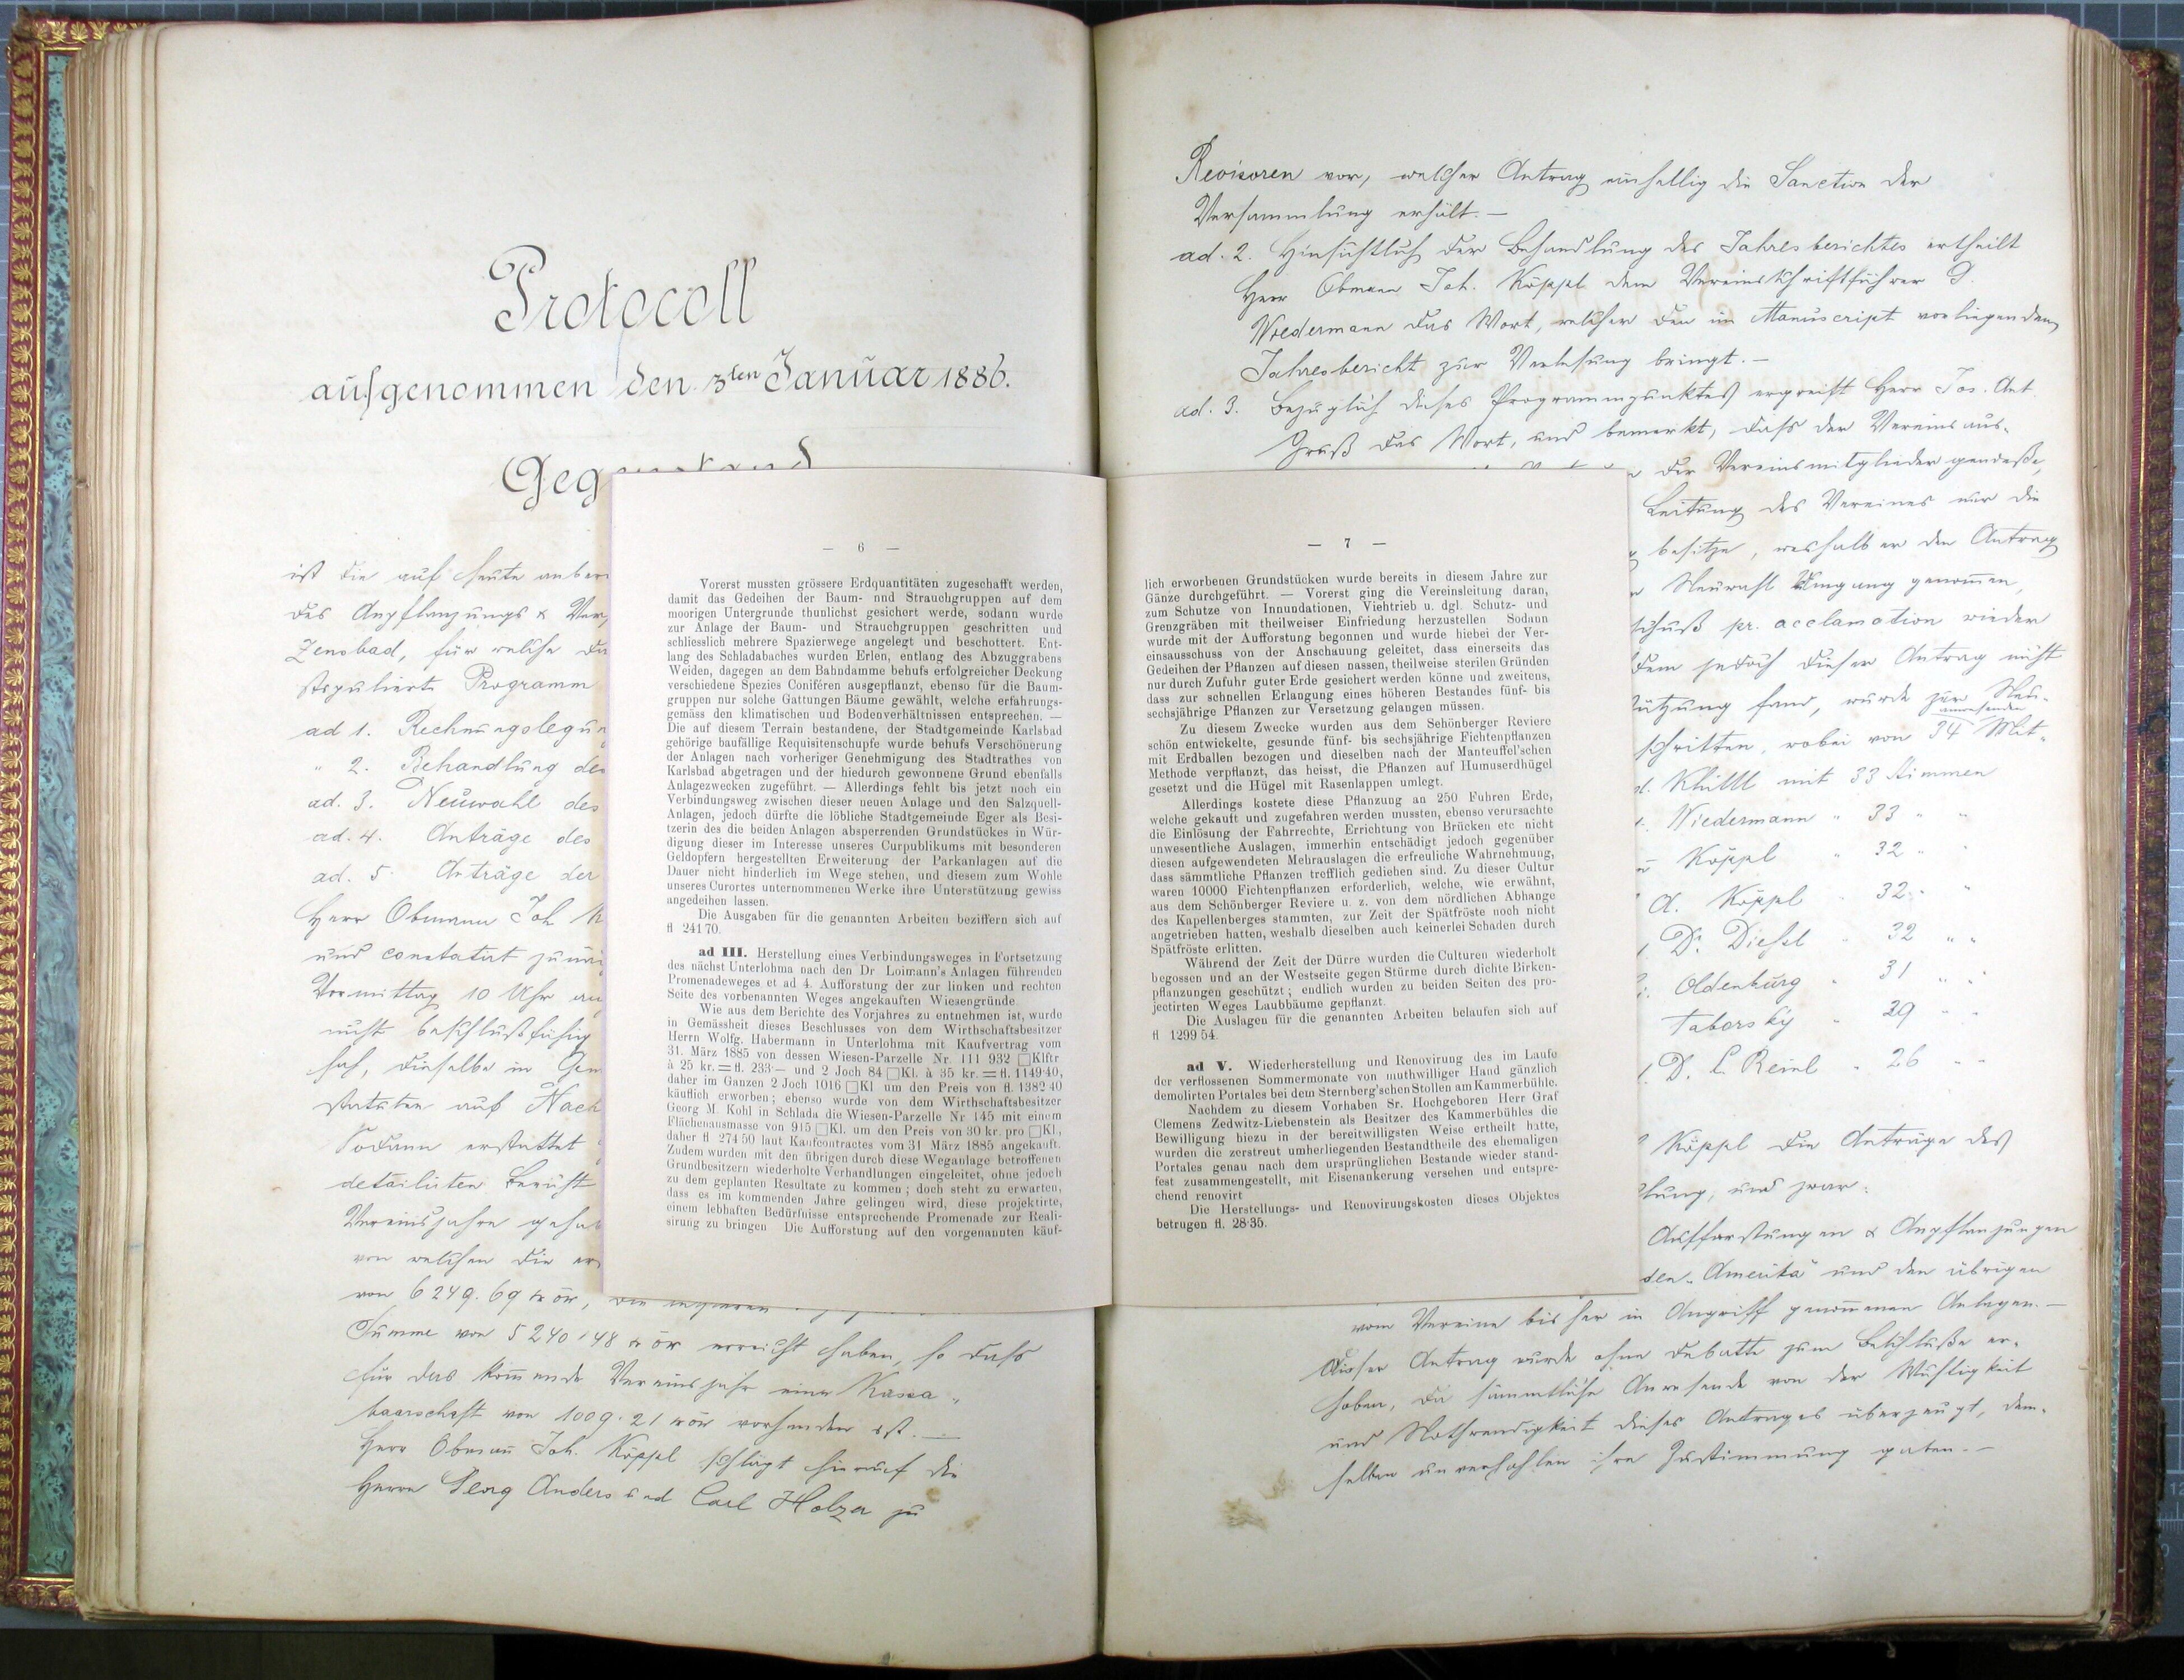 Protocoll
aufgenommen den 3ten Januar 1886.
Gegenstand
ist die auf heute anber
des Anpflanzungs & Ver
für welche di
Programm
ad 1. Rechnungslegun
" 2. Behandlung des
ad. 3. Neuwahl des
ad. 4. Anträge des
ad. 5. Anträge der
Herr Obmann Joh K
und constatirt zunä
Vormittag 10 Uhr an
nicht beschlußfähig
sah, dieselbe in Gem
statuten auf Nach
Sodann erstattet
detailirten Bericht
Vereinsjahre gehab
von welchen die er
von 6249.69 kr öw,
Summe von 5240.48 kr öw erreicht haben, so dass
für das kommende Vereinsjahr eine Kassa-
baarschaft von 1009.21 kr öw vorhanden ist. —
Herr Obmann Joh. Köppl schlägt hierauf die
Herren Georg Anders und Carl Holzer zu
— 6 —
Vorerst mussten grössere Erdquantitäten zugeschafft werden,
damit das Gedeihen der Baum- und Strauchgruppen auf dem
moorigen Untergrunde thunlichst gesichert werde, sodann wurde
zur Anlage der Baum- und Strauchgruppen geschritten und
schliesslich mehrere Spazierwege angelegt und beschottert. Ent-
lang des Schladabaches wurden Erlen, entlang des Abzuggrabens
Weiden, dagegen an dem Bahndamme behufs erfolgreicher Deckung
verschiedene Spezies Coniféren ausgepflanzt, ebenso für die Baum-
gruppen nur solche Gattungen Bäume gewählt, welche erfahrungs-
gemäss den klimatischen und Bodenverhältnissen entsprechen. —
Die auf diesem Terrain bestandene, der Stadtgemeinde Karlsbad
gehörige baufällige Requisitenschupfe wurde behufs Verschönerung
der Anlagen nach vorheriger Genehmigung des Stadtrathes von
Karlsbad abgetragen und der hiedurch gewonnene Grund ebenfalls
Anlagezwecken zugeführt. — Allerdings fehlt bis jetzt noch ein
Verbindungsweg zwischen dieser neuen Anlage und den Salzquell-
Anlagen, jedoch dürfte die löbliche Stadtgemeinde Eger als Besi-
tzerin des die beiden Anlagen absperrenden Grundstückes in Wür-
digung dieser im Interesse unseres Curpublikums mit besonderen
Geldopfern hergestellten Erweiterung der Parkanlagen auf die
Dauer nicht hinderlich im Wege stehen, und diesem zum Wohle
unseres Curortes unternommenen Werke ihre Unterstützung gewiss
angedeihen lassen.
Die Ausgaben für die genannten Arbeiten beziffern sich auf
fl 241 70.
ad III. Herstellung eines Verbindungsweges in Fortsetzung
des nächst Unterlohma nach den Dr Loimann's Anlagen führenden
Promenadeweges et ad 4. Aufforstung der zur linken und rechten
Seite des vorbenannten Weges angekauften Wiesengründe.
Wie aus dem Berichte des Vorjahres zu entnehmen ist, wurde
in Gemässheit dieses Beschlusses von dem Wirthschaftsbesitzer
Herrn Wolfg. Habermann in Unterlohma mit Kaufvertrag vom
31. März 1885 von dessen Wiesen-Parzelle Nr. 111 932 □Klftr
à 25 kr. = fl. 233·— und 2 Joch 84 □Kl. à 35 kr. = fl. 1149·40,
daher im Ganzen 2 Joch 1016 □Kl um den Preis von fl. 1382 40
käuflich erworben; ebenso wurde von dem Wirthschaftsbesitzer
Georg M. Kohl in Schlada die Wiesen-Parzelle Nr 145 mit einem
Flächenausmasse von 915 □Kl. um den Preis von 30 kr. pro □Kl.,
daher fl 274 50 laut Kaufcontractes vom 31 März 1885 angekauft.
Zudem wurden mit den übrigen durch diese Weganlage betroffenen
Grundbesitzern wiederholte Verhandlungen eingeleitet, ohne jedoch
zu dem geplanten Resultate zu kommen; doch steht zu erwarten,
dass es im kommenden Jahre gelingen wird, diese projektirte,
einem lebhaften Bedürfnisse entsprechende Promenade zur Reali-
sirung zu bringen Die Aufforstung auf den vorgenannten käuf-
Revisoren vor, welcher Antrag einhellig die Sanction der
Versammlung erhält. —
ad. 2. Hinsichtlich der Behandlung des Jahresberichtes ertheilt
Herr Obmann Joh. Köppl dem Vereinsschriftführer D.
Niedermann das Wort, welcher den im Manuscript vorliegenden
Jahresbericht zur Verlesung bringt. —
ad. 3. Bezüglich dieses Programmpunktes ergreift Herr Jos. Ant.
das Wort, und bemerkt, dass der Vereinsaus-
der Vereinsmitglieder
Leitung des Vereines nur die
besitze, weshalb er den Antrag
Neuwahl Umgang genommen,
schuß pr. acclamation wieder
dem jedoch dieser Antrag nicht
ützung fand, wurde zur Neu-
anwesenden
schritten, wobei von 34 Mit-
mit 33 Stimmen
Niedermann " 33 " "
Köppl " 32 " "
A. Köppl " 32 " "
Dr. Diessl " 32 " "
Oldenburg " 31 " "
Taborsky " 29 " "
D. L. Reinl " 26 " "
Köppl die Anträge des
lung, und zwar:
Aufforstungen & Anpflanzungen
den "Amerika" und den übrigen
vom Vereine bisher in Angriff genommenen Anlagen. —
Dieser Antrag wurde ohne Debatte zum Beschluße er-
hoben, da sämmtliche Anwesende von der Wichtigkeit
und Nothwendigkeit dieses Antrages überzeugt, dem-
selben unverhohlen ihre Zustimmung gaben. —
— 7 —
lich erworbenen Grundstücken wurde bereits in diesem Jahre zur
Gänze durchgeführt. — Vorerst ging die Vereinsleitung daran,
zum Schutze von Innundationen, Viehtrieb u. dgl. Schutz- und
Grenzgräben mit theilweiser Einfriedung herzustellen Sodann
wurde mit der Aufforstung begonnen und wurde hiebei der Ver-
einsausschuss von der Anschauung geleitet, dass einerseits das
Gedeihen der Pflanzen auf diesen nassen, theilweise sterilen Gründen
nur durch Zufuhr guter Erde gesichert werden könne und zweitens,
dass zur schnellen Erlangung eines höheren Bestandes fünf- bis
sechsjährige Pflanzen zur Versetzung gelangen müssen.
Zu diesem Zwecke wurden aus dem Sehönberger Reviere
schön entwickelte, gesunde fünf- bis sechsjährige Fichtenpflanzen
mit Erdballen bezogen und dieselben nach der Manteuffel'schen
Methode verpflanzt, das heisst, die Pflanzen auf Humuserdhügel
gesetzt und die Hügel mit Rasenlappen umlegt.
Allerdings kostete diese Pflanzung an 250 Fuhren Erde,
welche gekauft und zugefahren werden mussten, ebenso verursachte
die Einlösung der Fahrrechte, Errichtung von Brücken etc nicht
unwesentliche Auslagen, immerhin entschädigt jedoch gegenüber
diesen aufgewendeten Mehrauslagen die erfreuliche Wahrnehmung,
dass sämmtliche Pflanzen trefflich gediehen sind. Zu dieser Cultur
waren 10000 Fichtenpflanzen erforderlich, welche, wie erwähnt,
aus dem Schönberger Reviere u. z. von dem nördlichen Abhange
des Kapellenberges stammten, zur Zeit der Spätfröste noch nicht
angetrieben hatten, weshalb dieselben auch keinerlei Schaden durch
Spätfröste erlitten.
Während der Zeit der Dürre wurden die Culturen wiederholt
begossen und an der Westseite gegen Stürme durch dichte Birken-
pflanzungen geschützt; endlich wurden zu beiden Seiten des pro-
jectirten Weges Laubbäume gepflanzt.
Die Auslagen für die genannten Arbeiten belaufen sich auf
fl 1299 54.
ad V. Wiederherstellung und Renovirung des im Laufe
der verflossenen Sommermonate von muthwilliger Hand gänzlich
demolirten Portales bei dem Sternberg'schen Stollen am Kammerbühle.
Nachdem zu diesem Vorhaben Sr. Hochgeboren Herr Graf
Clemens Zedwitz-Liebenstein als Besitzer des Kammerbühles die
Bewilligung hiezu in der bereitwilligsten Weise ertheilt hatte,
wurden die zerstreut umherliegenden Bestandtheile des ehemaligen
Portales genau nach dem ursprünglichen Bestande wieder stand-
fest zusammengestellt, mit Eisenankerung versehen und entspre-
chend renovirt
Die Herstellungs- und Renovirungskosten dieses Objektes
betrugen fl. 28·35.